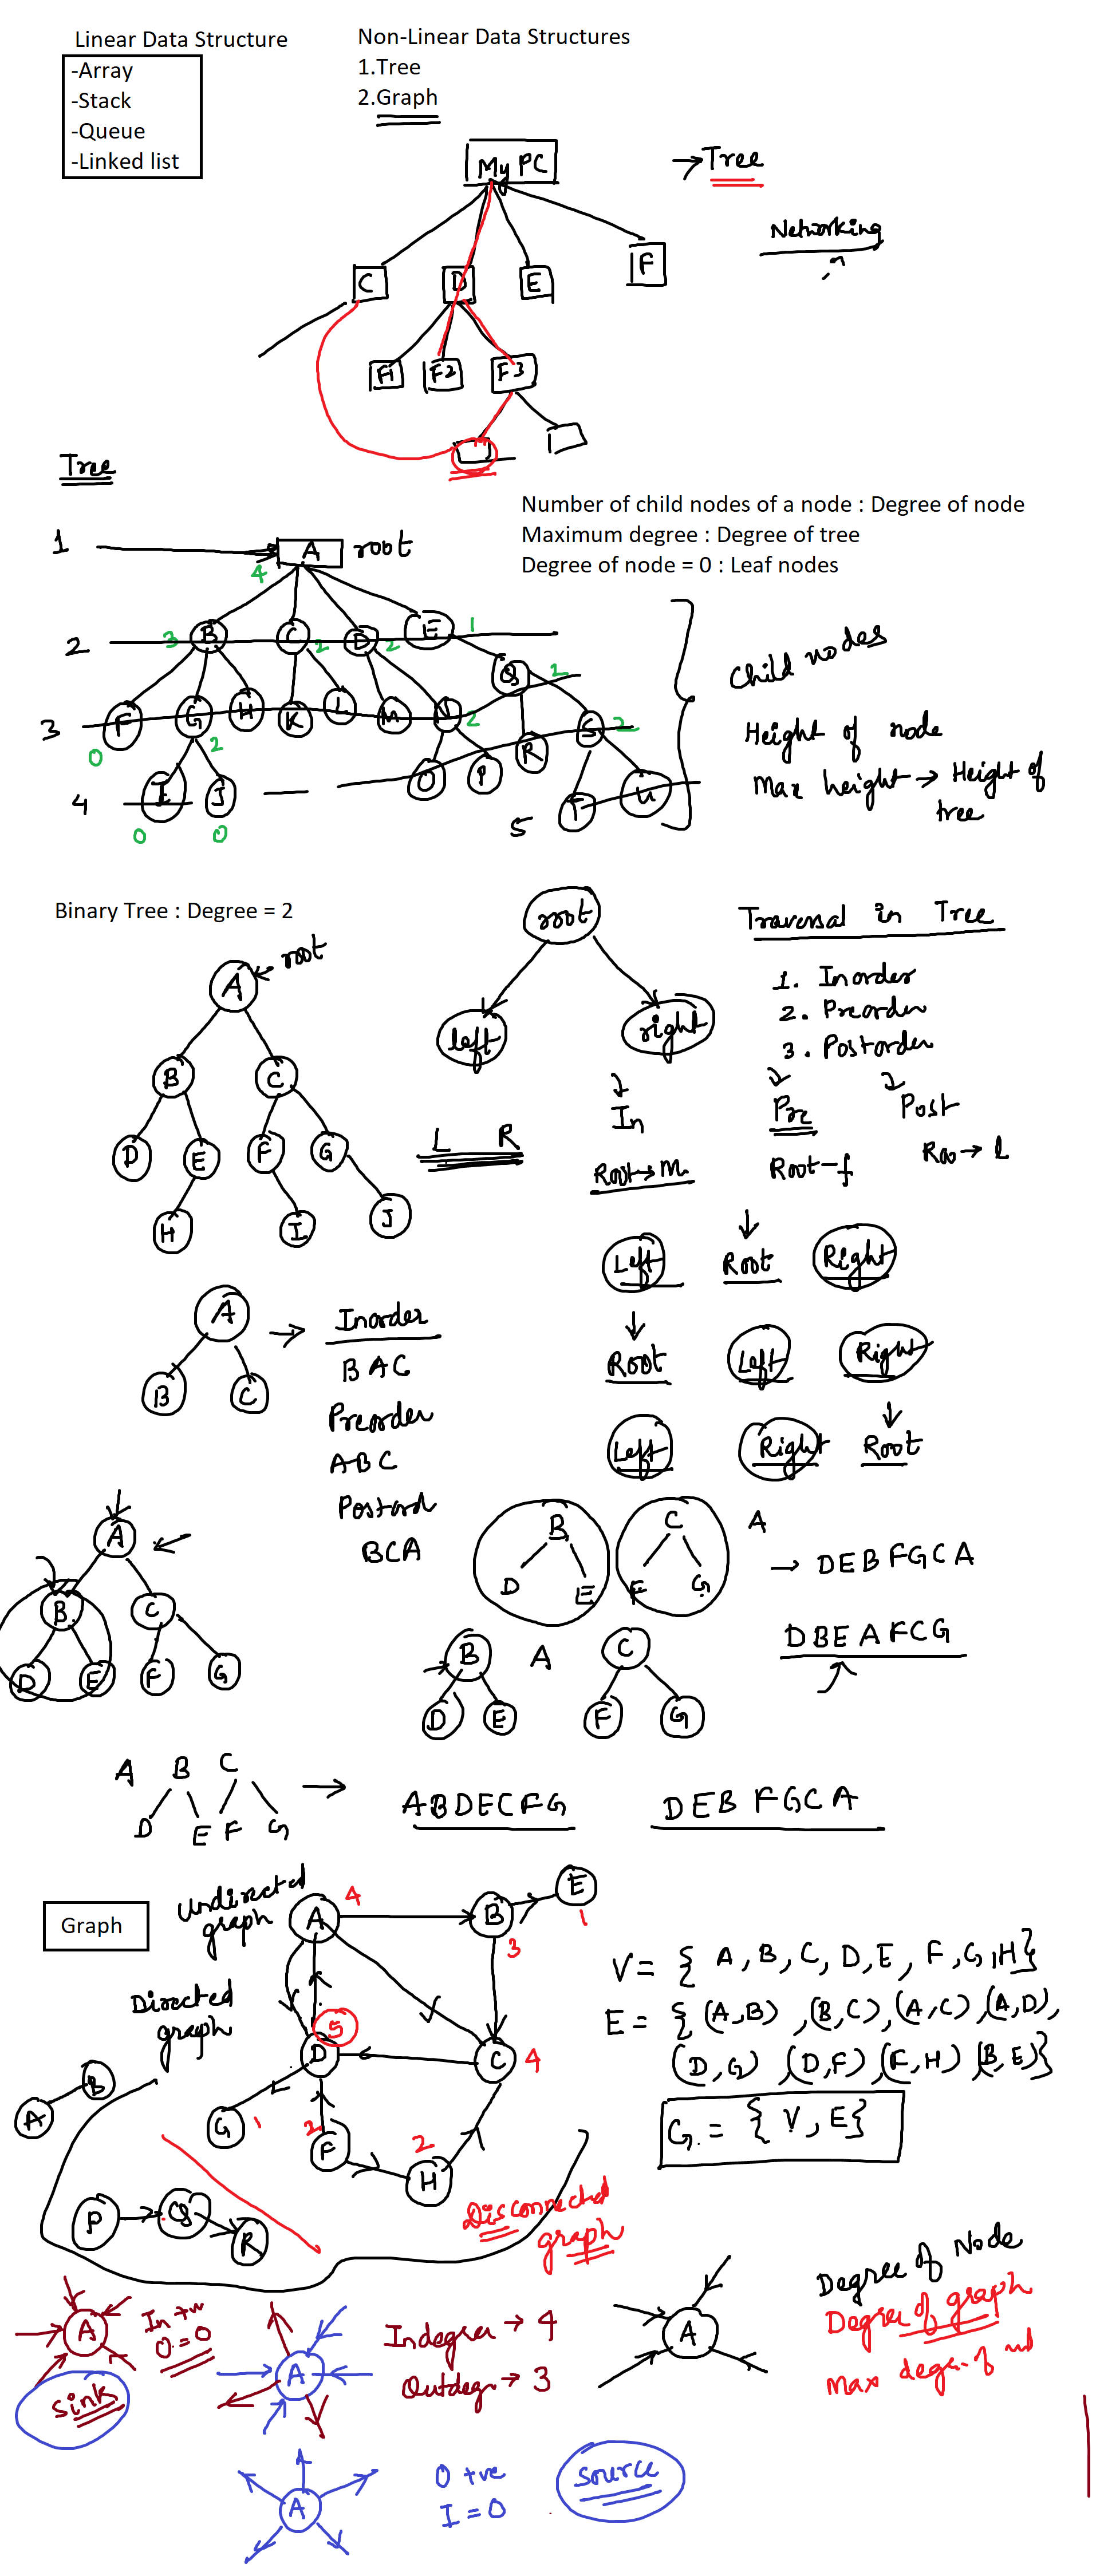 Linear Data Structure
-Array
-Stack
-Queue
-Linked list
Non-Linear Data Structures
1.Tree
2.Graph
My PC
→ Tree
Networking
C D E F
F1 F2 F3
Tree
Number of child nodes of a node : Degree of node
Maximum degree : Degree of tree
Degree of node = 0 : Leaf nodes
1 A root
4
2 3 B C 2 D 2 E 1
Q 2
3 F G H K L M N 2 R S 2
0 2
4 I J O P T U
0 0 5
Child nodes
Height of node
Max height → Height of
tree
Binary Tree : Degree = 2
A root
B C
D E F G
H I J
root
left right
L R
Traversal in Tree
1. Inorder
2. Preorder
3. Postorder
In Pre Post
Root → m Root - f Roo → l
Left Root Right
Root Left Right
Left Right Root
A
B C
→ Inorder
BAC
Preorder
ABC
Postord
BCA
A
B C
D E F G
B C A
D E F G
→ DEBFGCA
B A C
D E F G
DBEAFCG
A B C
D E F G
→ ABDECFG DEBFGCA
Graph
Undirected
graph
Directed
graph
A 4 B 3 E 1
5
D C 4
G 1 2 F 2 H
A B
P Q R
Disconnected
graph
V = { A, B, C, D, E, F, G, H}
E = { (A,B) ,(B,C), (A,C), (A,D),
(D,G) ,(D,F), (F,H) (B,E)}
G = { V, E}
Degree of Node
Degree of graph
Max dege. of nd
A In +ve
O = 0
Sink
A
Indegree → 4
Outdeg → 3
A
A
O +ve
I = 0
Source